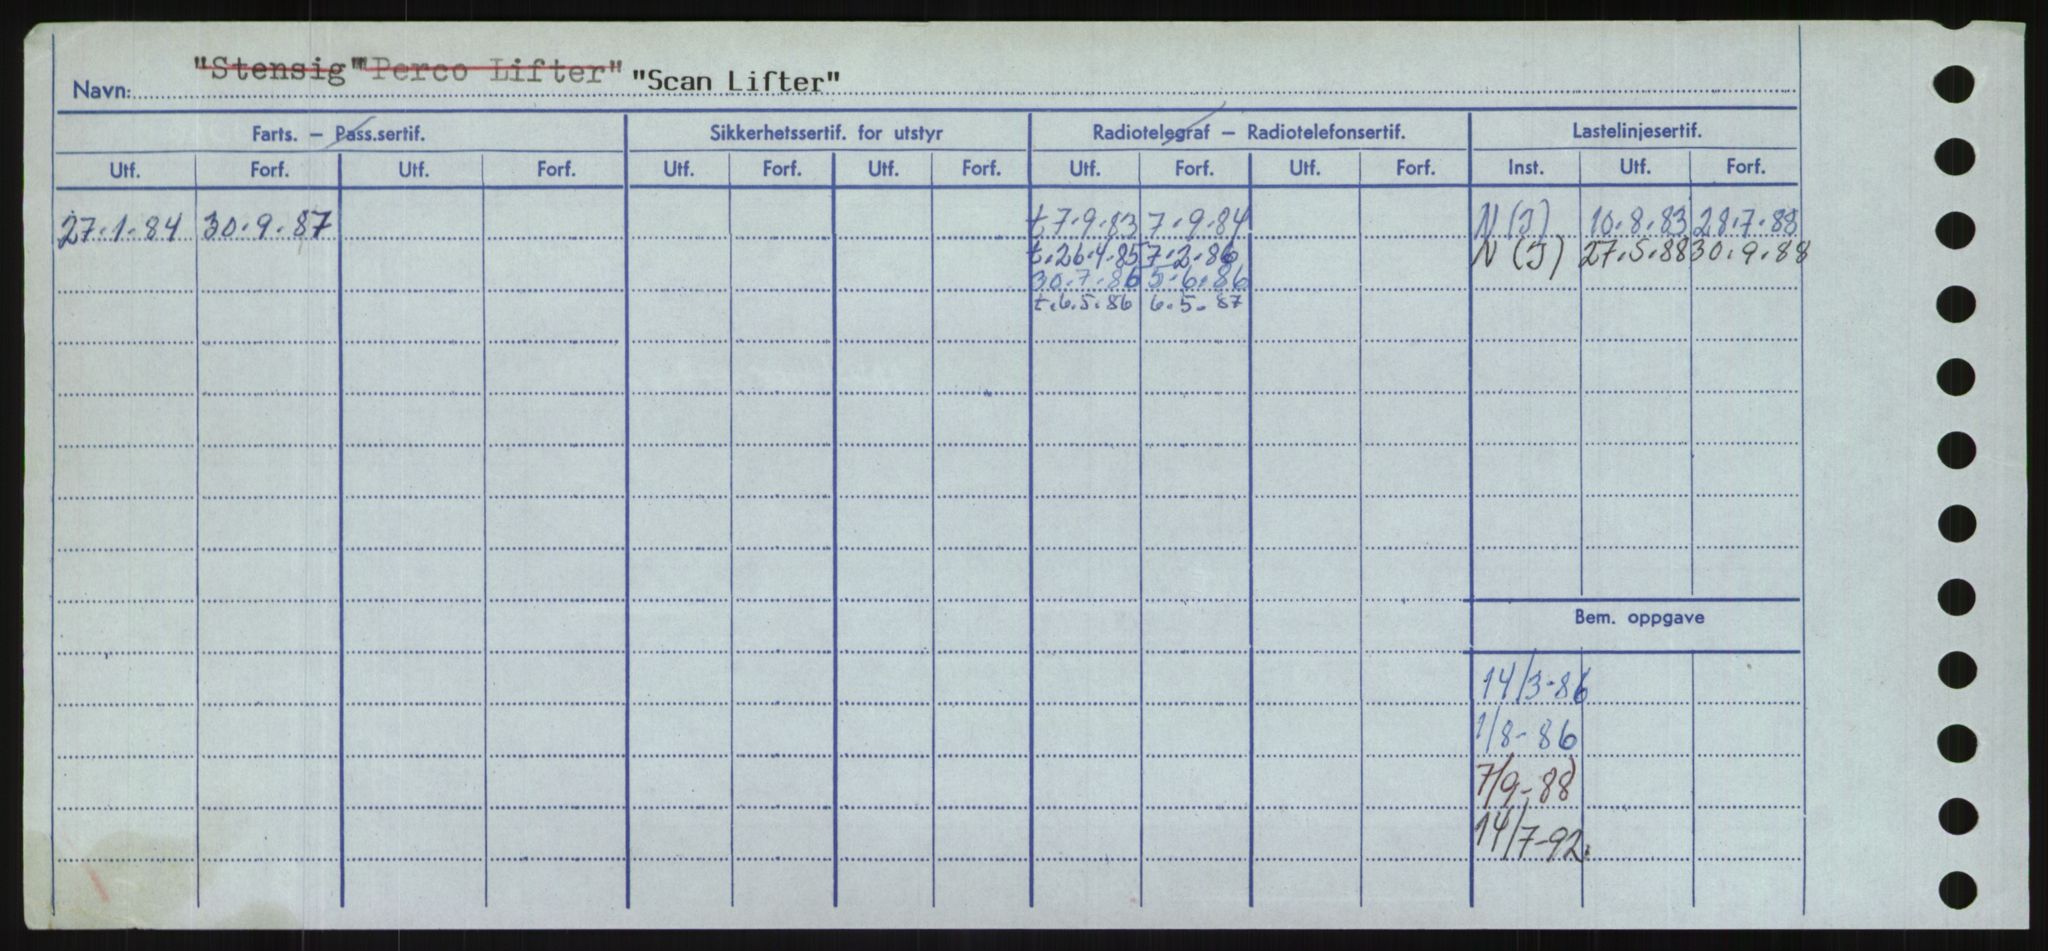 Navn: "Stensig" "Perco Lifter" "Scan Lifter"
Farts. – Pass.sertif. Sikkerhetssertif. for utstyr Radiotelegraf – Radiotelefonsertif. Lastelinjesertif.
Utf. Forf. Utf. Forf. Utf. Forf. Utf. Forf. Utf. Forf. Utf. Forf. Inst. Utf. Forf.
27.1.84 30.9.87 t 7.9.83 7.9.84 N (I) 10.8.83 28.7.88
t.26.4.85 7.2.86 N (I) 27.5.88 30.9.88
30.7.86 5.6.86
t.6.5.86 6.5.87
Bem. oppgave
14/3-86
1/8-86
7/9-88
14/7-92.